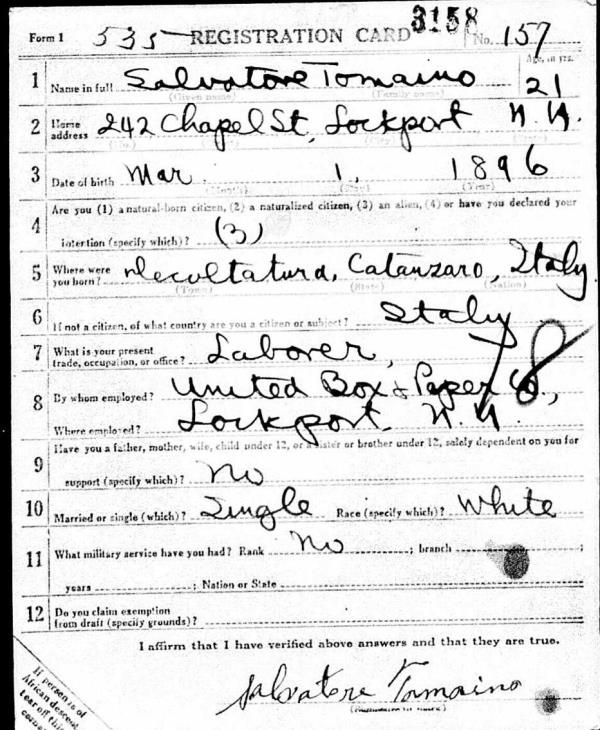 3158
Form 1 535 REGISTRATION CARD No. 157
Age, in yrs.
1 Name in full Salvatore Tomaino 21
(Given name) (Family name)
2 Home address 242 Chapel St, Lockport N.Y.
3 Date of birth Mar. 1, 1896
(Month) (Day) (Year)
4 Are you (1) a natural-born citizen, (2) a naturalized citizen, (3) an alien, (4) or have you declared your
intention (specify which)? (3)
5 Where were you born? Decollatura, Catanzaro, Italy
(Town) (State) (Nation)
6 If not a citizen, of what country are you a citizen or subject? Italy
7 What is your present trade, occupation, or office? Laborer,
8 By whom employed? United Box & Paper Co.,
Where employed? Lockport, N.Y.
9 Have you a father, mother, wife, child under 12, or a sister or brother under 12, solely dependent on you for
support (specify which)? No
10 Married or single (which)? Single Race (specify which)? White
11 What military service have you had? Rank No ; branch ;
years ; Nation or State
12 Do you claim exemption from draft (specify grounds)?
I affirm that I have verified above answers and that they are true.
Salvatore Tomaino
(Signature or mark)
If person is of
African descent,
tear off this
corner